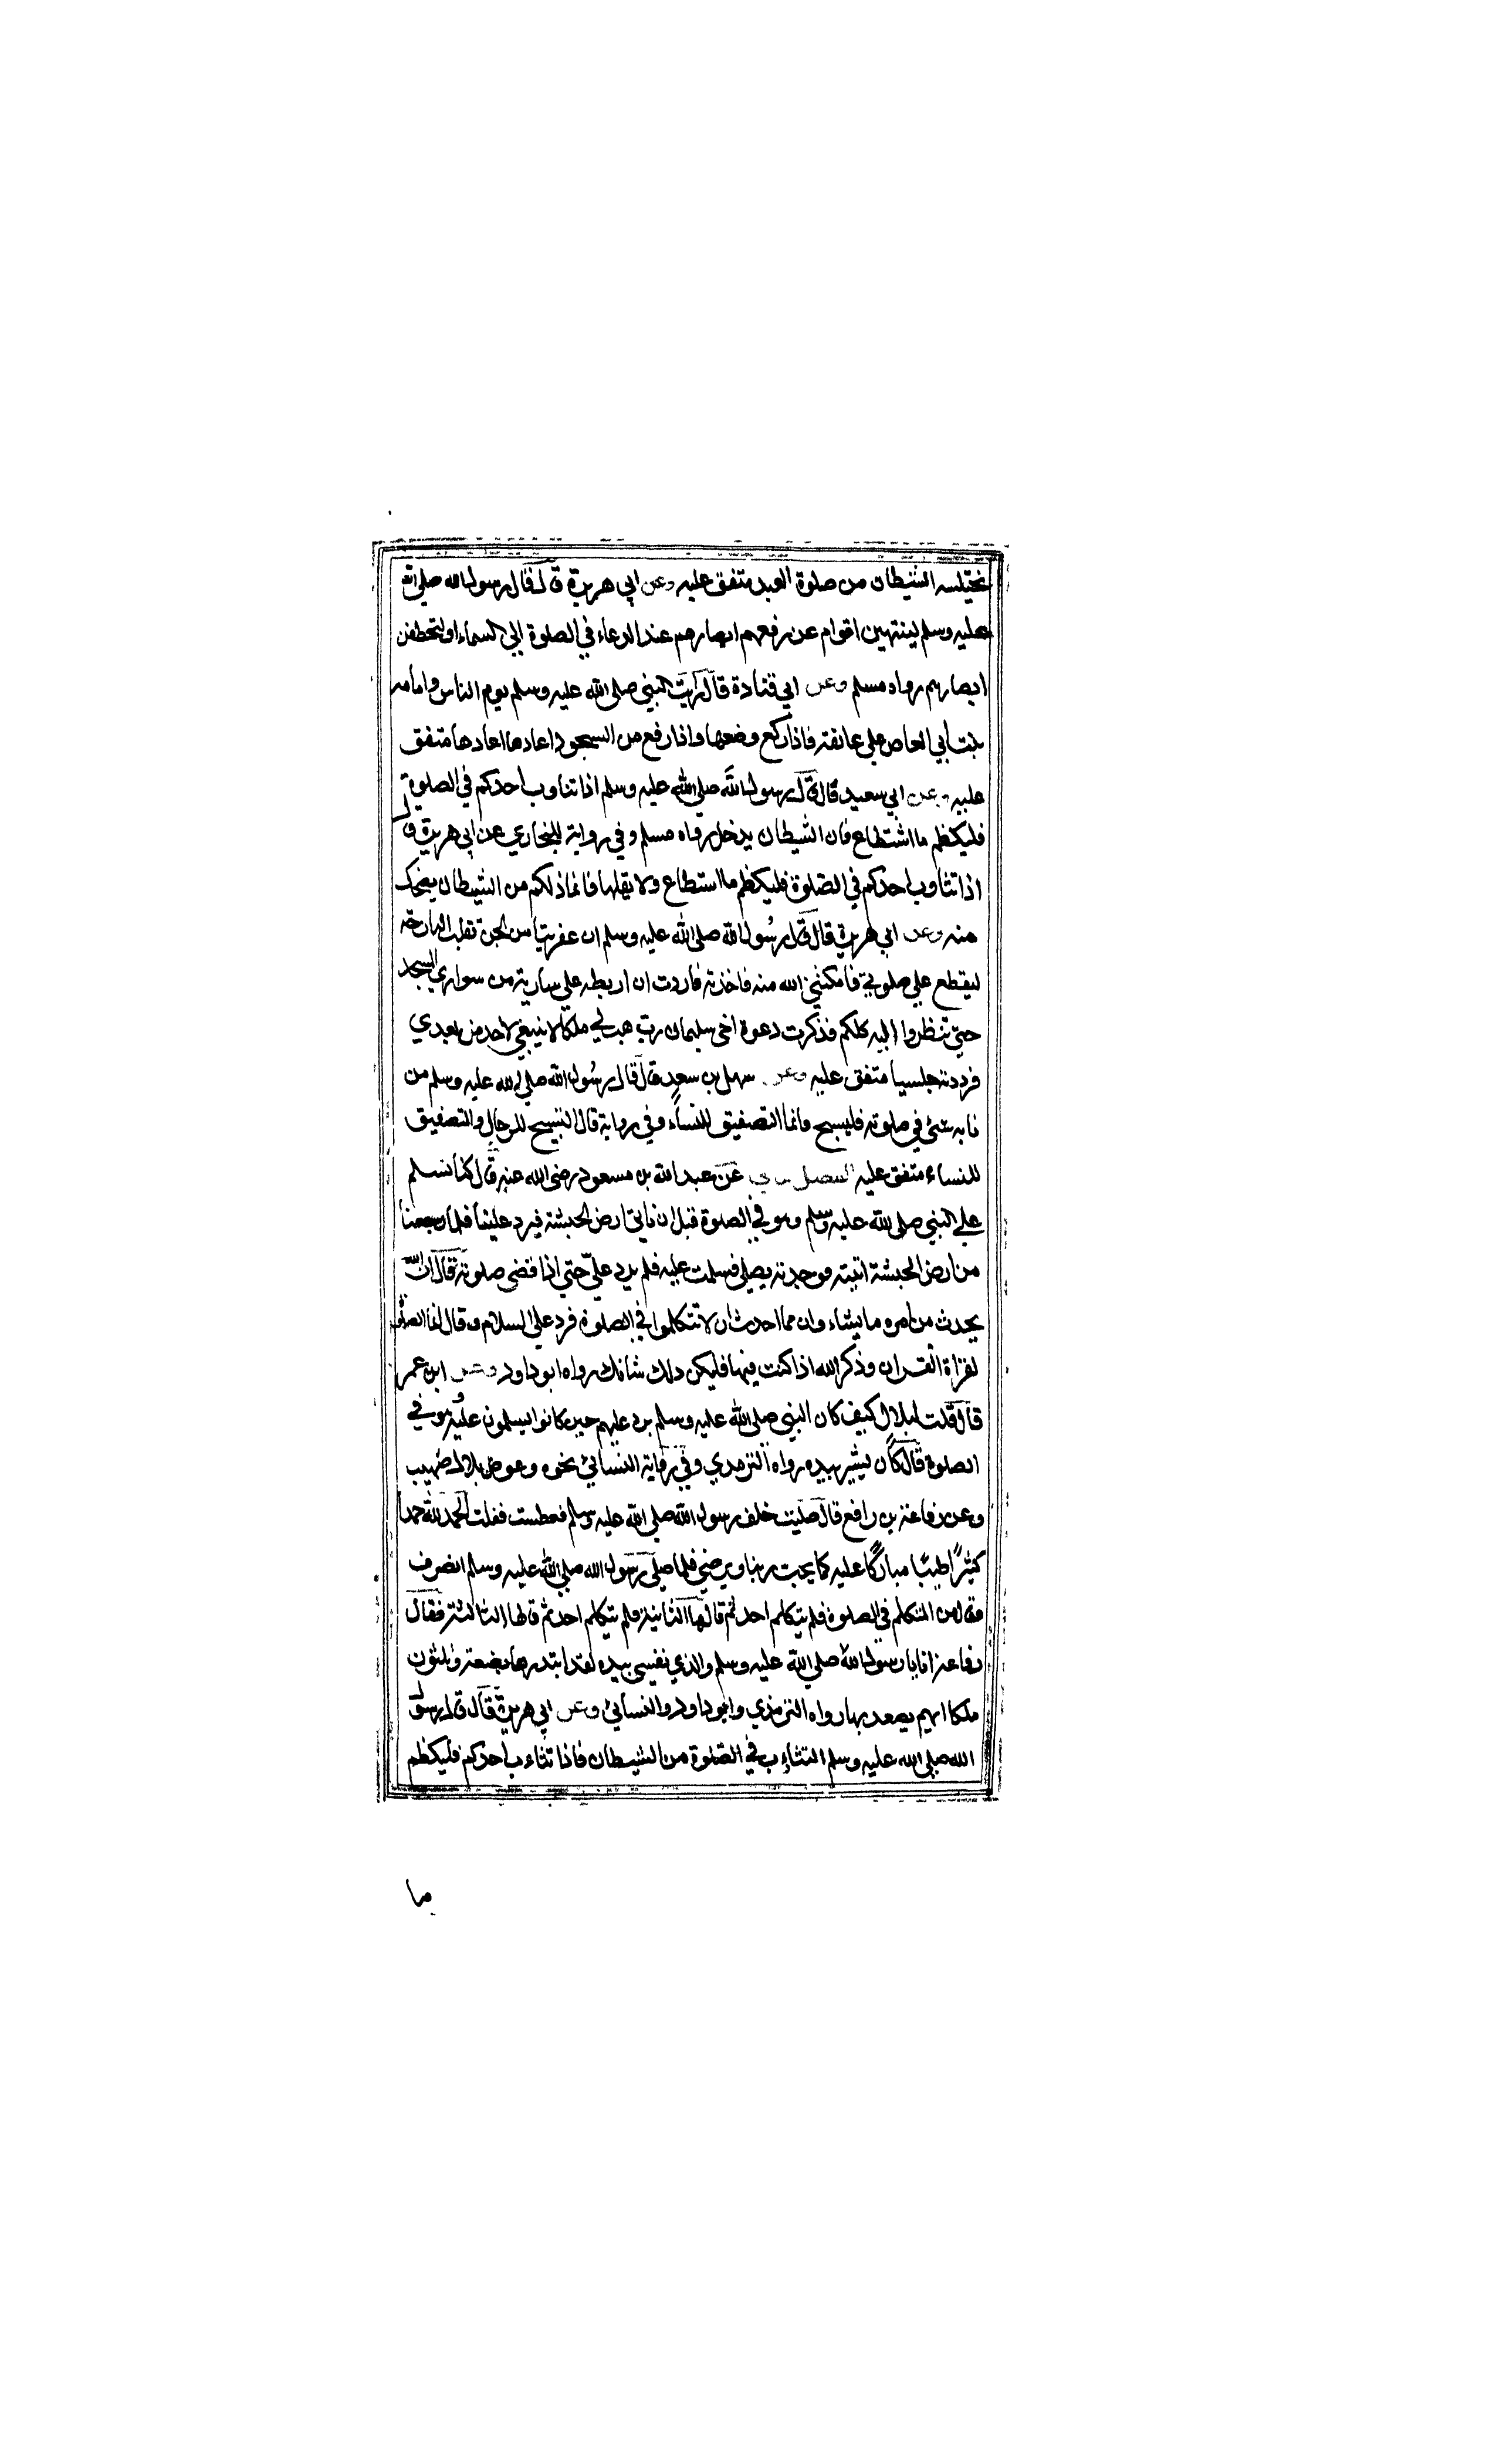 يختلسه الشيطان من صلوة العبد متفق عليه وعن ابي هريرة قال قال رسول الله صلى الله
عليه وسلم لينتهين اقوام عن رفعهم ابصارهم عند الدعاء في الصلوة الي السماء او لتخطفن
ابصارهم رواه مسلم وعن ابي قتادة قال رايت النبي صلى الله عليه وسلم يوم الناس وامامه
بنت ابي العاص علي عاتقه فاذا ركع وضعها واذا رفع من السجود اعادها اعادها متفق
عليه وعن ابي سعيد قال قال رسول الله صلى الله عليه وسلم اذا تثاوب احدكم في الصلوة
فليكظم ما استطاع فان الشيطان يدخل رواه مسلم وفي رواية للبخاري عن ابي هريرة قال
اذا تثاوب احدكم في الصلوة فليكظم ما استطاع ولا يقلها فانما ذلكم من الشيطان يضحك
منه وعن ابي هريرة قال قال رسول الله صلى الله عليه وسلم ان عفريتا من الجن تفلت البارحة
ليقطع علي صلوتي فامكنني الله منه فاخذته فاردت ان اربطه علي سارية من سواري المسجد
حتي تنظروا اليه كلكم فذكرت دعوة اخي سليمان رب هب لي ملكا لا ينبغي لاحد من بعدي
فرددته خاسيا متفق عليه وعن سهل بن سعد قال قال رسول الله صلي الله عليه وسلم من
نابه شئ في صلوته فليسبح وانما التصفيق للنساء وفي رواية قال التسبيح للرجال والتصفيق
للنساء متفق عليه الفصل الثاني عن عبد الله بن مسعود رضى الله عنه قال كنا نسلم
علي النبي صلى الله عليه وسلم وهو في الصلوة قبل ان ناتي ارض الحبشة فيرد علينا فلما رجعنا
من ارض الحبشة اتيته فوجدته يصلي فسلمت عليه فلم يرد عليّ حتي اذا قضى صلوته قال ان الله
يحدث من امره ما يشاء وان مما احدث ان لا تتكلموا في الصلوة فرد علي السلام وقال انما الصلوة
لقراة القران وذكر الله اذا كنت فيها فليكن ذلك شانك رواه ابو داود وعن ابن عمر
قال قلت لبلال كيف كان النبي صلى الله عليه وسلم يرد عليهم حين كانوا يسلمون عليه وهو في
الصلوة قال كان يشير بيده رواه الترمذي وفي رواية النسائي نحوه وعوض بلال صهيب
وعن رفاعة بن رافع قال صليت خلف رسول الله صلى الله عليه وسلم فعطست فقلت الحمد لله حمدا
كثيرًا طيبًا مباركًا عليه كما يحب ربنا ويرضي فلما صلى رسول الله صلي الله عليه وسلم انصرف
فقال من المتكلم في الصلوة فلم يتكلم احد ثم قالها الثانية فلم يتكلم احد ثم قالها الثالثة فقال
رفاعة انا يا رسول الله صلي الله عليه وسلم والذي نفسي بيده لقد ابتدرها بضعة وثلثون
ملكا ايهم يصعد بها رواه الترمذي وابو داود والنسائي وعن ابي هريرة قال قال رسول
الله صلى الله عليه وسلم التثاءب في الصلوة من الشيطان فاذا تثاءب احدكم فليكظم
ما